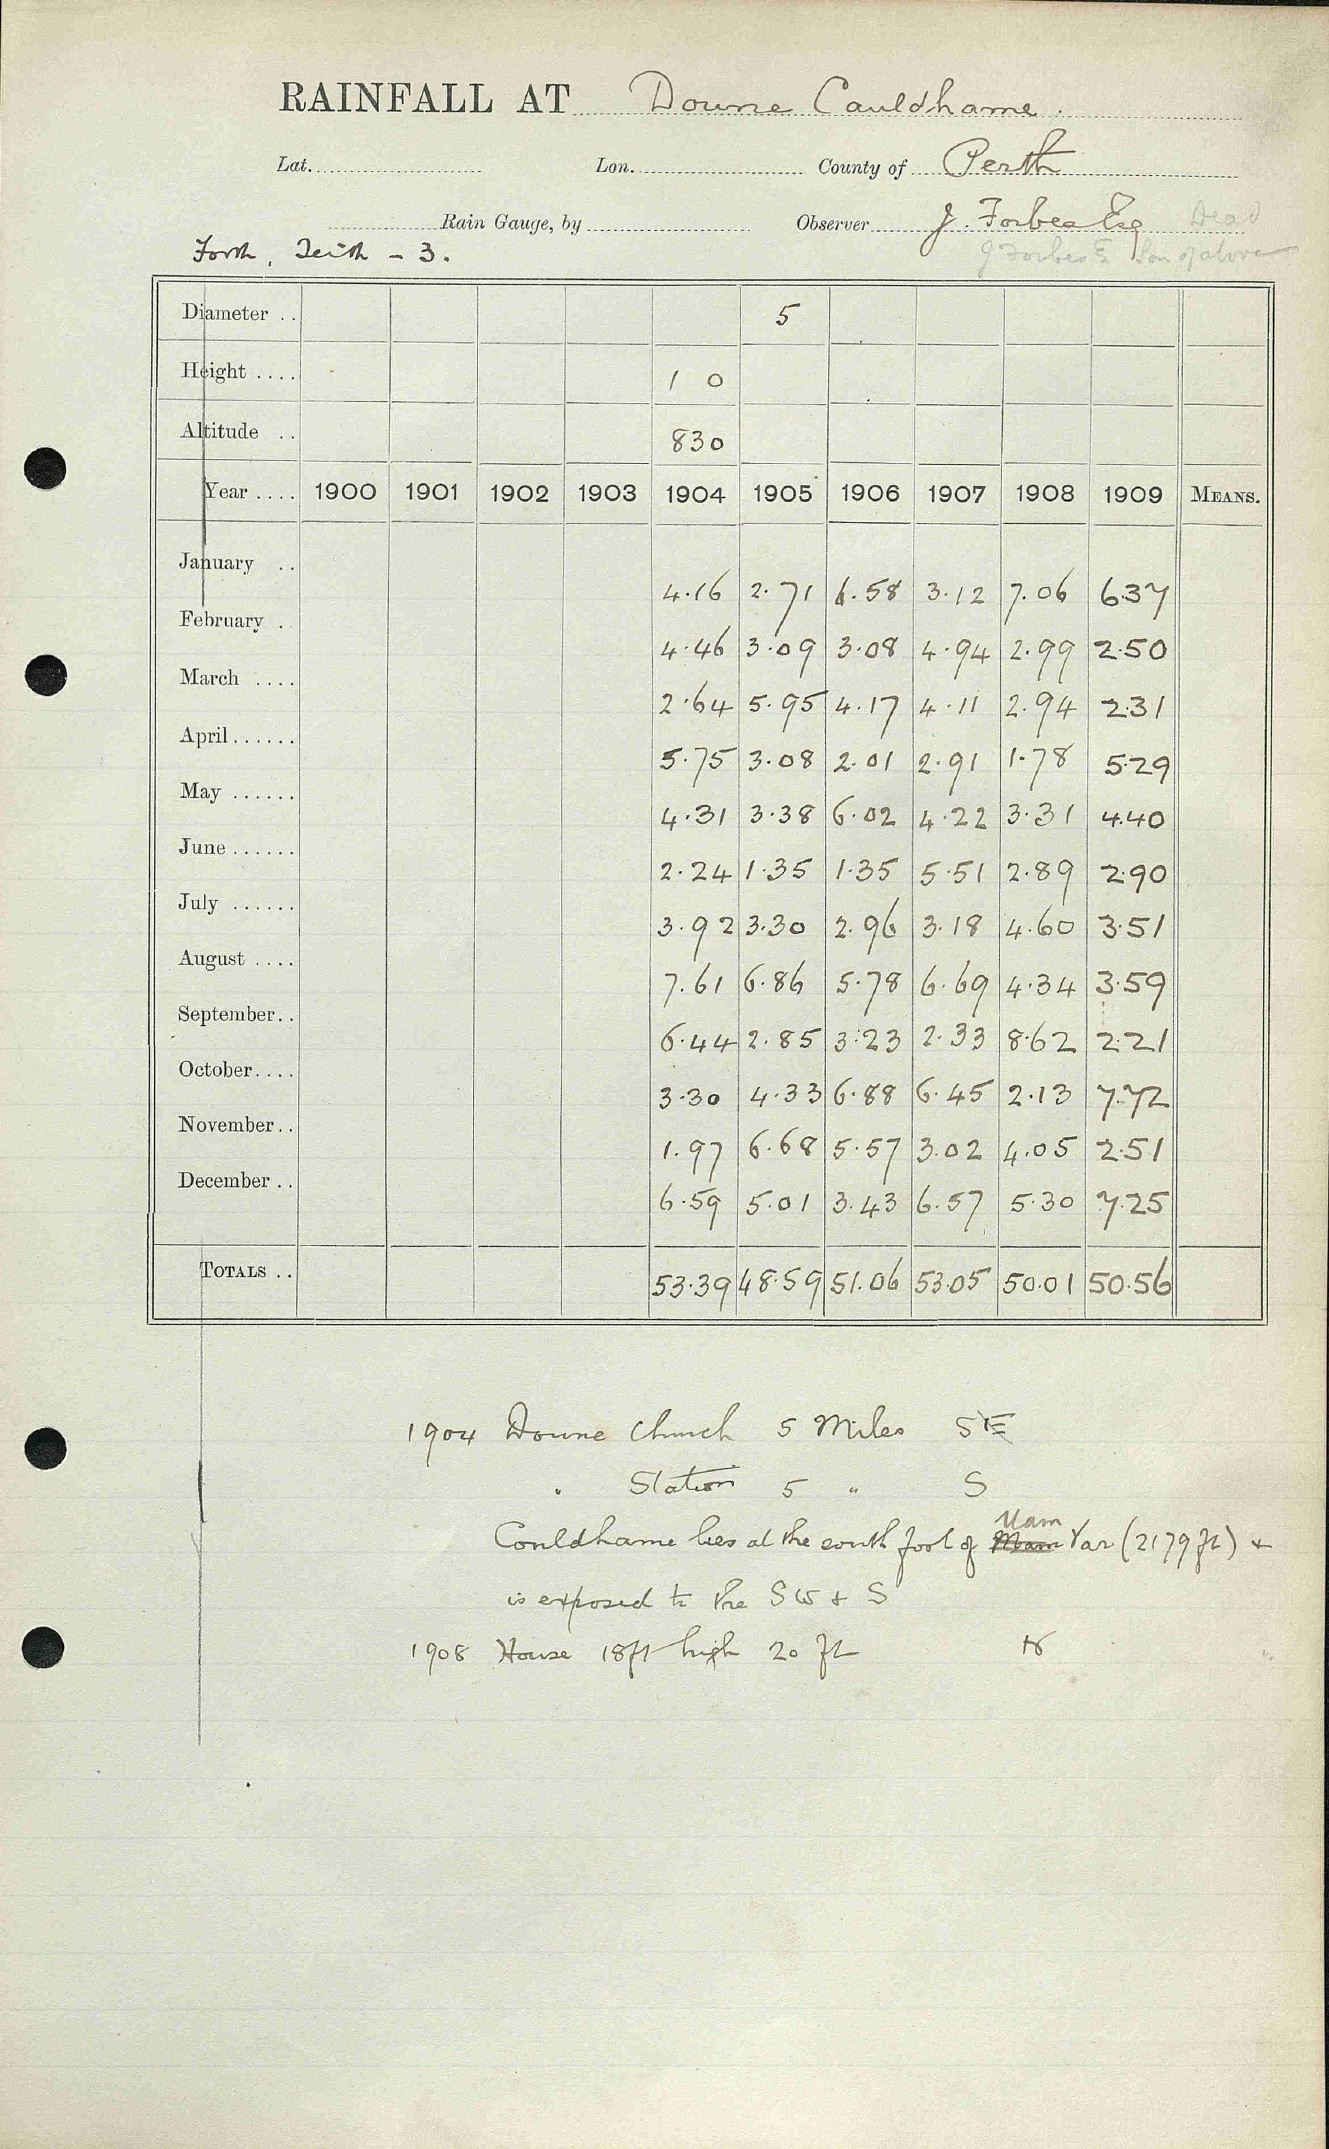 RAINFALL AT Doune Cauldhame.
Lat. Lon. County of Perth
Rain Gauge, by Observer J. Forbes Esq Dead
Forth, Teith - 3. J Forbes E Son of above
Diameter .. 5
Height .... 1 0
Altitude .. 830
Year .... 1900 1901 1902 1903 1904 1905 1906 1907 1908 1909 MEANS.
January .. 4.16 2.71 6.58 3.12 7.06 6.37
February . 4.46 3.09 3.08 4.94 2.99 2.50
March .... 2.64 5.95 4.17 4.11 2.94 2.31
April...... 5.75 3.08 2.01 2.91 1.78 5.29
May ...... 4.31 3.38 6.02 4.22 3.31 4.40
June ...... 2.24 1.35 1.35 5.51 2.89 2.90
July ...... 3.92 3.30 2.96 3.18 4.60 3.51
August .... 7.61 6.86 5.78 6.69 4.34 3.59
September.. 6.44 2.85 3.23 2.33 8.62 2.21
October.... 3.30 4.33 6.88 6.45 2.13 7.72
November.. 1.97 6.68 5.57 3.02 4.05 2.51
December .. 6.59 5.01 3.43 6.57 5.30 7.25
TOTALS .. 53.39 48.59 51.06 53.05 50.01 50.56
1904 Doune Church 5 Miles SE
" Station 5 " S
Uam
Couldhame lies at the south foot of Mam Var (2179 ft) +
is exposed to the SW + S
1908 House 18ft high 20 ft N